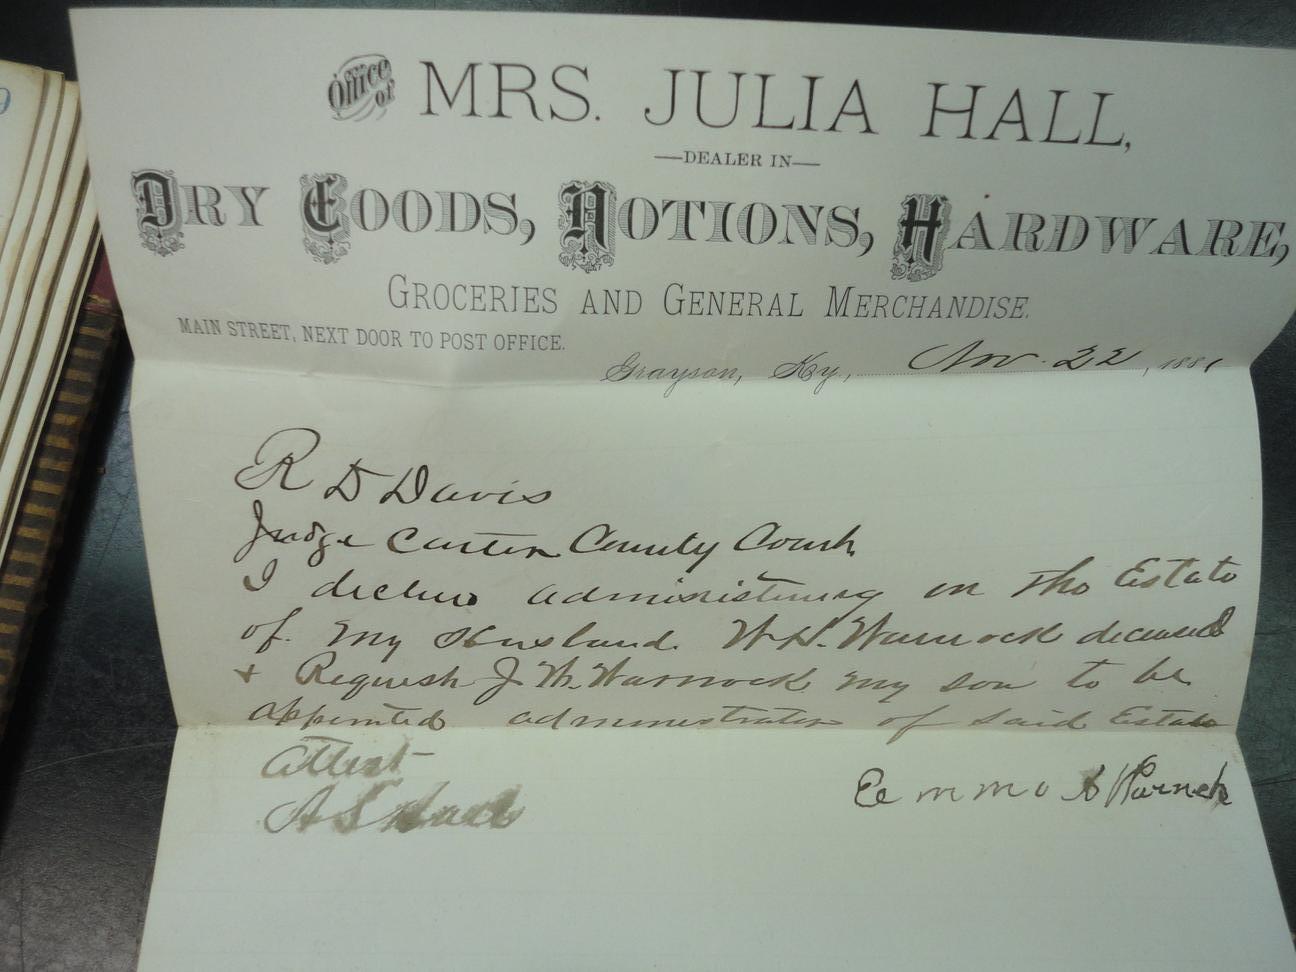 9
Office of MRS. JULIA HALL,
—DEALER IN—
DRY GOODS, NOTIONS, HARDWARE,
GROCERIES AND GENERAL MERCHANDISE.
MAIN STREET, NEXT DOOR TO POST OFFICE.
Grayson, Ky., Nov. 22, 1881
R D Davis
Judge Carter County Court
I decline administering on the Estate
of my Husband W H. Warnock deceased
+ Request J W. Warnock my son to be
appointed administrator of said Estate
Attest
A S
Eemma Warnck